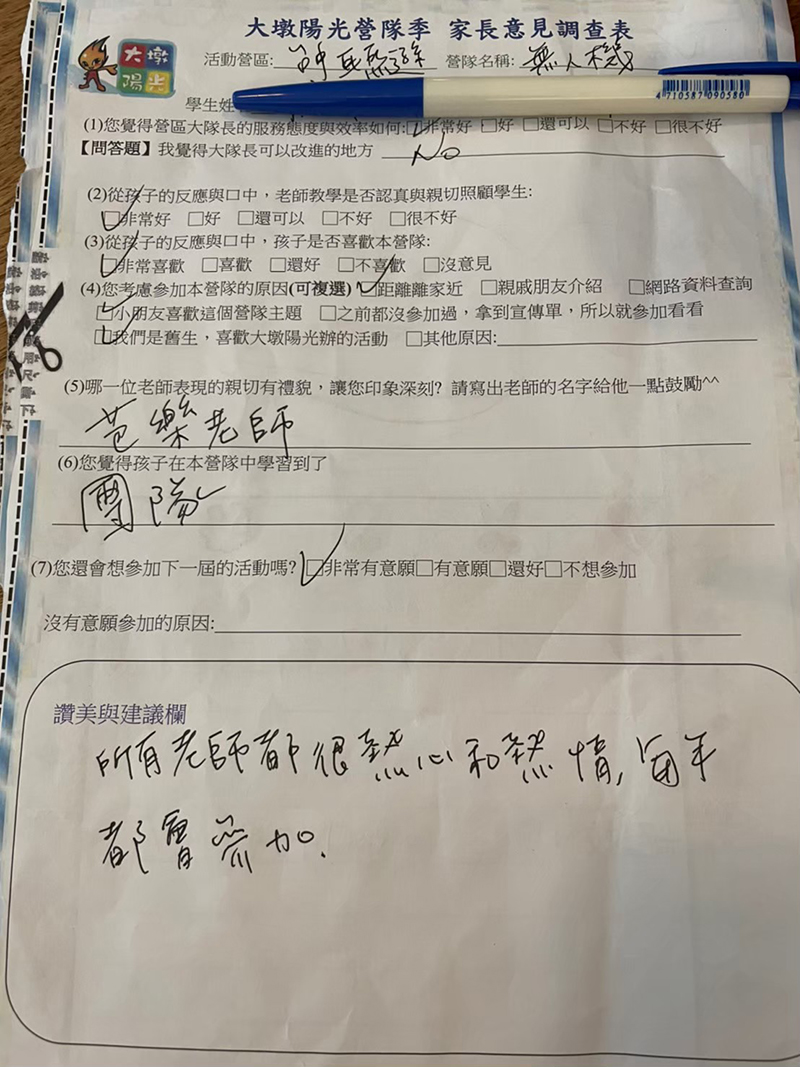 大墩陽光營隊季 家長意見調查表
大墩
陽光
活動營區: 營隊名稱: 無人機
學生姓
4 710587 090580
(1)您覺得營區大隊長的服務態度與效率如何:□非常好 □好 □還可以 □不好 □很不好
【問答題】我覺得大隊長可以改進的地方 No
(2)從孩子的反應與口中，老師教學是否認真與親切照顧學生:
☑非常好 □好 □還可以 □不好 □很不好
(3)從孩子的反應與口中，孩子是否喜歡本營隊:
☑非常喜歡 □喜歡 □還好 □不喜歡 □沒意見
(4)您考慮參加本營隊的原因(可複選) ☑距離離家近 □親戚朋友介紹 □網路資料查詢
☑小朋友喜歡這個營隊主題 □之前都沒參加過，拿到宣傳單，所以就參加看看
☑我們是舊生，喜歡大墩陽光辦的活動 □其他原因:
(5)哪一位老師表現的親切有禮貌，讓您印象深刻? 請寫出老師的名字給他一點鼓勵^^
芭樂老師
(6)您覺得孩子在本營隊中學習到了
團隊
(7)您還會想參加下一屆的活動嗎? ☑非常有意願□有意願□還好□不想參加
沒有意願參加的原因:
讚美與建議欄
所有老師都很熱心和熱情,每年
都會參加.